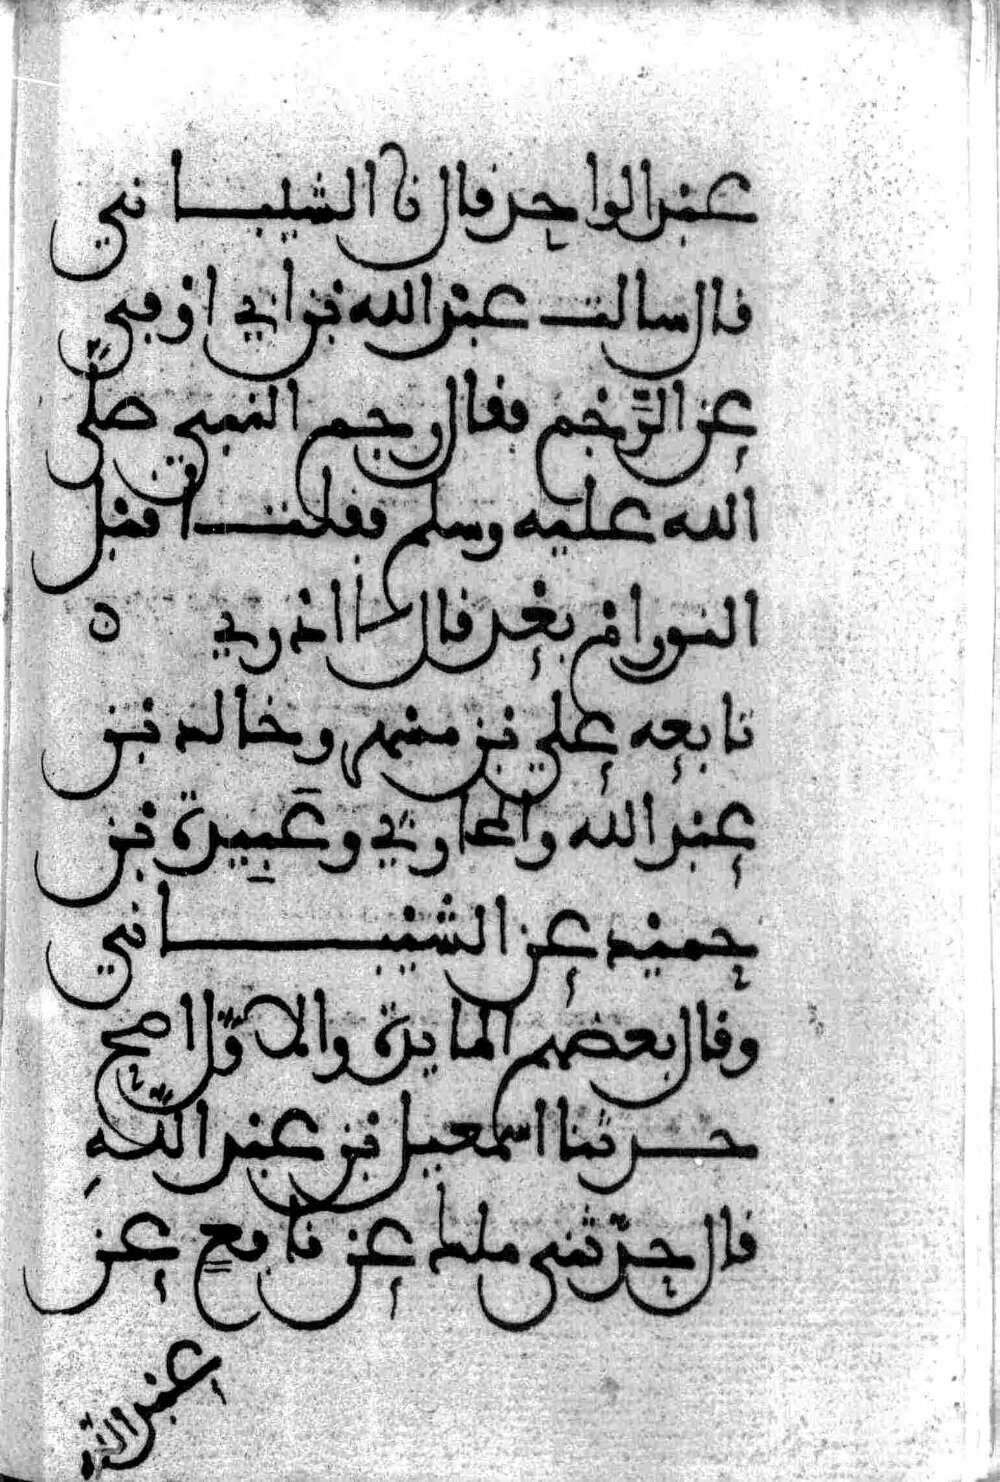 عبد الواحد قال نا الشيبـــاني
قال سالت عبد الله بن ابي اوفى
عن الرجم فقال رجم النبي صلى
الله عليه وسلم فقلت اقبل
النور ام بعد قال لا ادري ه
تابعه علي بن مسهر وخالد بن
عبد الله والمحاربي وعبيدة بن
حميد عن الشيبـــاني
وقال بعضهم المايدة والاول اصح
حدثنا اسمعيل بن عبد الله
قال حدثني ملك عن نافع عن
عبد الله